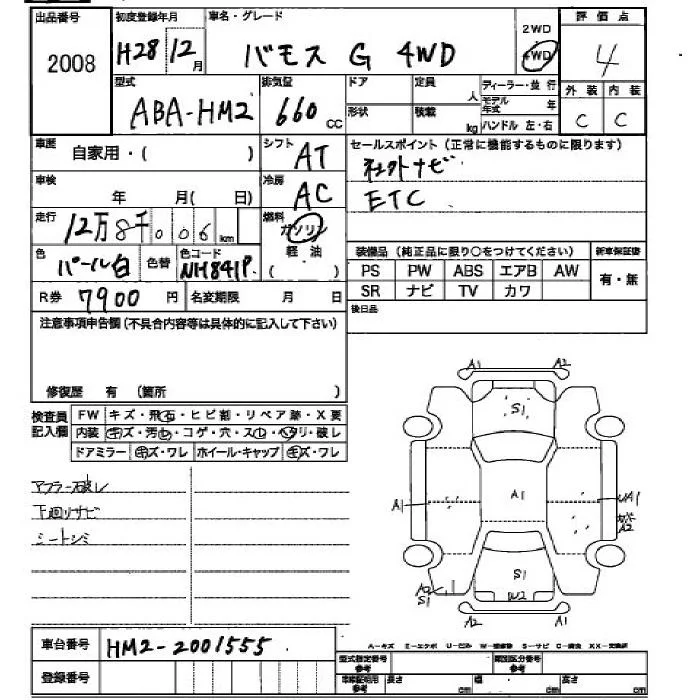 出品番号 初度登録年月 車名・グレード 2WD 評価点
2008 H28 12月 バモス G 4WD 4WD 4
型式 排気量 ドア 定員 人 ディーラー・並行 外装 内装
ABA-HM2 660 cc 形状 積載 kg モデル年式 年 C C
ハンドル 左・右
車歴 自家用・( ) シフト AT セールスポイント(正常に機能するものに限ります)
社外ナビ
車検 年 月( 日) 冷房 AC ETC
走行 12万8千006km 燃料 ガソリン
軽油
( )
色 パール白 色替 色コード NH841P 装備品(純正品に限り○をつけてください) 新車保証書
PS PW ABS エアB AW 有・無
SR ナビ TV カワ
R券 7900円 名変期限 月 日 後日品
注意事項申告欄(不具合内容等は具体的に記入して下さい)
修復歴 有(箇所 )
検査員記入欄 FW キズ・飛石・ヒビ割・リペア跡・X要
内装 キズ・汚レ・コゲ・穴・スレ・ヘタリ・破レ
ドアミラー キズ・ワレ ホイール・キャップ キズ・ワレ
下廻りサビ
シートシミ
A1 A2
S1
A1 A1 UA1
A2
S1
A2 S1 W2
A2 A1
車台番号 HM2-2001555
A-キズ E-エクボ U-凹ミ S-サビ
登録番号 型式指定番号参考 類別区分番号参考
車庫証明用参考 長さ cm 幅 cm 高さ cm